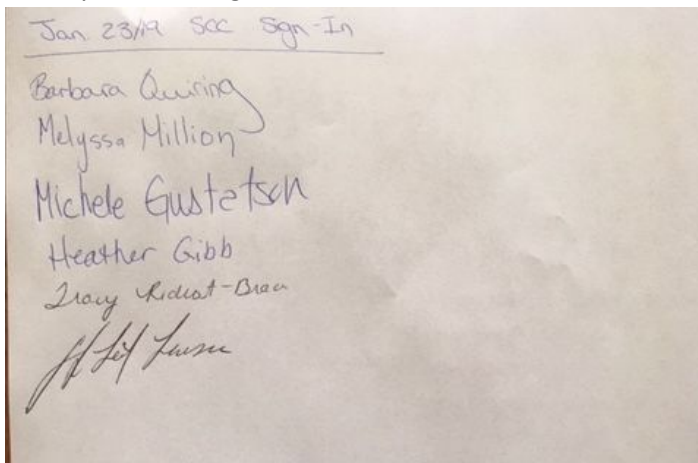 Jan 23/19 SCC Sign-In
Barbara Quiring
Melyssa Million
Michele Gustafson
Heather Gibb
Tracy